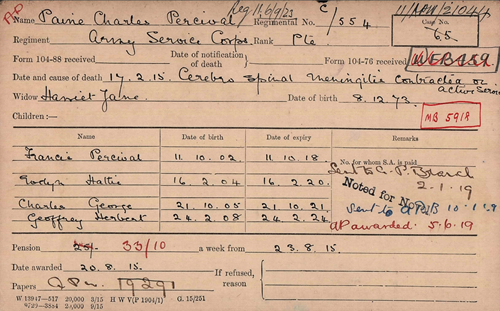 AP Reg. 11. 6/9/23
Name Paine Charles Percival Regimental No. C/554 Case No. 65.
Regiment Army Service Corps. Rank Pte
Form 104-88 received Date of notification of death Form 104-76 received
Date and cause of death 17.2.15. Cerebro Spinal Meningitis contracted on Active Service
Widow Harriet Jane. Date of birth 8.12.73.
Children:— MB 5918
Name Date of birth Date of expiry Remarks
Francis Percival 11.10.02. 11.10.18. No. for whom S.A. is paid
Sent to C.P. Branch
2-1-19
Hattie 16.2.04 16.2.20. Noted for No.
Charles George 21.10.05 21.10.21. Sent to 10.1.19
Geoffrey Herbert 24.2.08 24.2.24 AP awarded. 5.6.19
Pension 25/- 33/10 a week from 23.8.15.
Date awarded 20.8.15. If refused, reason
Papers
W. 13947—517 20,000 3/15 H W V(P 1904/1) G. 15/251
9729—3884 20,000 9/15